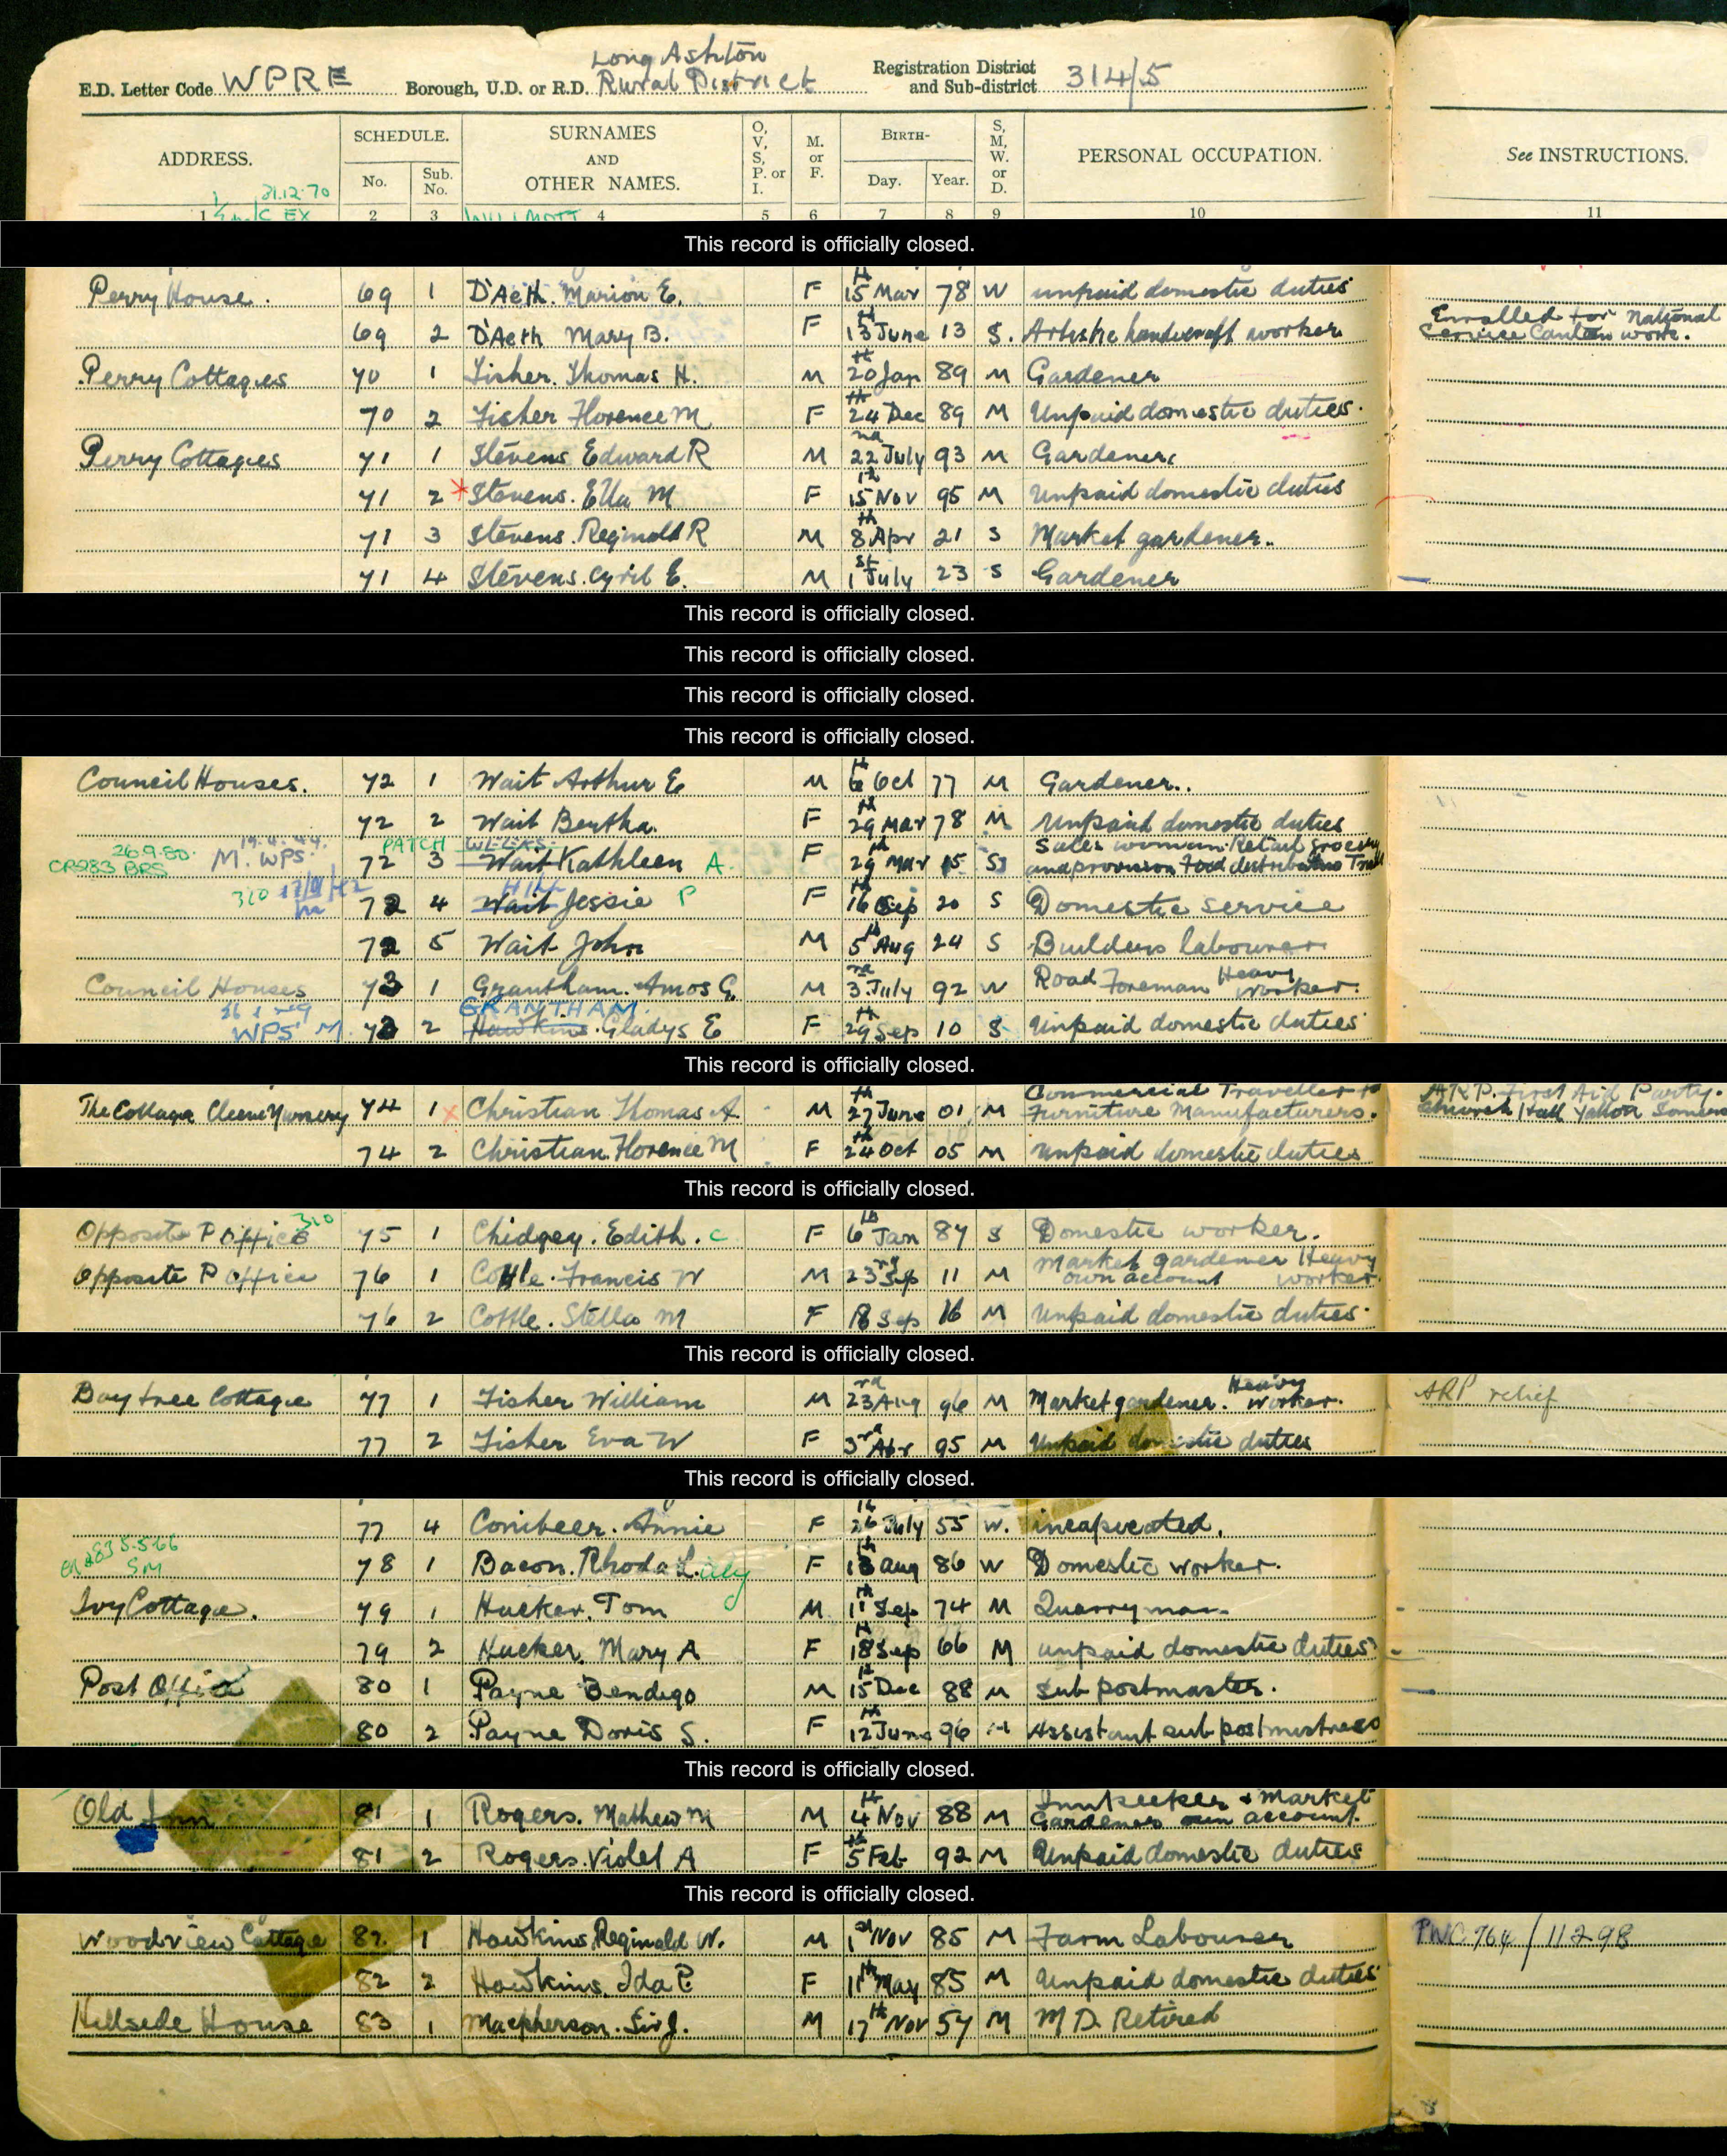 Long Ashton
E.D. Letter Code WPRE Borough, U.D. or R.D. Rural District Registration District and Sub-district 314/5
ADDRESS. SCHEDULE. No. Sub. No. SURNAMES AND OTHER NAMES. O, V, S, P. or I. M. or F. BIRTH- Day. Year. S, M, W. or D. PERSONAL OCCUPATION. See INSTRUCTIONS.
31.12.70
1 EX 2 3 WILLMOTT 4 5 6 7 8 9 10 11
This record is officially closed.
Perry House. 69 1 D'Aeth. Marion E. F 15th Mar 78 W unpaid domestic duties
69 2 D'Aeth Mary B. F 13th June 13 S. Artistic handicraft worker Enrolled for National Service Canteen work.
Perry Cottages 70 1 Fisher. Thomas H. M 20th Jan 89 M Gardener
70 2 Fisher Florence M F 24th Dec 89 M Unpaid domestic duties.
Perry Cottages 71 1 Stevens Edward R M 22nd July 93 M Gardener
71 2 Stevens. Ella M F 15th Nov 95 M Unpaid domestic duties
71 3 Stevens. Reginald R M 8th Apr 21 S Market gardener.
71 4 Stevens. Cyril E. M 1st July 23 S Gardener
This record is officially closed.
This record is officially closed.
This record is officially closed.
This record is officially closed.
Council Houses. 72 1 Wait Arthur E M 6th Oct 77 M Gardener.
72 2 Wait Bertha. F 29th Mar 78 M Unpaid domestic duties
26.9.80. CR283 BRS 19.4.44. M. WPS. PATCH
72 3 Wait Kathleen A. F 29 Mar 15 S Sales woman. Retail Grocery and provision Food distributive
320 HILL
72 4 Wait Jessie P F 16th Sep 20 S Domestic service
72 5 Wait John M 5th Aug 24 S Builders labourer
Council Houses 73 1 Grantham. Amos G. M 3rd July 92 W Road Foreman Heavy Worker.
GRANTHAM.
WPS M 73 2 Hawkins. Gladys E F 29th Sep 10 S Unpaid domestic duties
This record is officially closed.
The Cottage Cleeve Nursery 74 1 Christian Thomas A. M 27th June 01 M Commercial Traveller to Furniture Manufacturers. A.R.P. First Aid Party. Church Hall Yatton Somers
74 2 Christian. Florence M F 24th Oct 05 M unpaid domestic duties
This record is officially closed.
320
Opposite P Office 75 1 Chidgey. Edith. C F 6th Jan 87 S Domestic worker.
Opposite P Office 76 1 Cottle. Francis W M 23rd Sep 11 M Market gardener Heavy own account worker.
76 2 Cottle. Stella M F 18 Sep 16 M Unpaid domestic duties.
This record is officially closed.
Bay tree Cottage 77 1 Fisher William M 23rd Aug 96 M Market gardener. Heavy Worker. ARP relief
77 2 Fisher Eva W F 3rd Apr 95 M Unpaid domestic duties
This record is officially closed.
77 4 Conibeer. Annie F 26th July 55 W. incapacitated.
5.5.66 SM
78 1 Bacon. Rhoda L.ily F 13th Aug 86 W Domestic worker.
Ivy Cottage. 79 1 Hucker, Tom M 11th Sep 74 M Quarryman
79 2 Hucker. Mary A F 18th Sep 66 M unpaid domestic duties
Post Office 80 1 Payne Bendigo M 15th Dec 88 M Sub postmaster.
80 2 Payne Doris S. F 12th June 96 M Assistant sub postmistress
This record is officially closed.
Old Inn 81 1 Rogers. Mathew M M 4th Nov 88 M Innkeeker & Market Gardener own account.
81 2 Rogers. Violet A F 5th Feb 92 M Unpaid domestic duties
This record is officially closed.
Woodview Cottage 82 1 Hawkins, Reginald W. M 1st Nov 85 M Farm Labourer PWC 764 / 11298
82 2 Hawkins. Ida P. F 11th May 85 M Unpaid domestic duties
Hillside House 83 1 Macpherson. Sir J. M 17th Nov 57 M M D. Retired